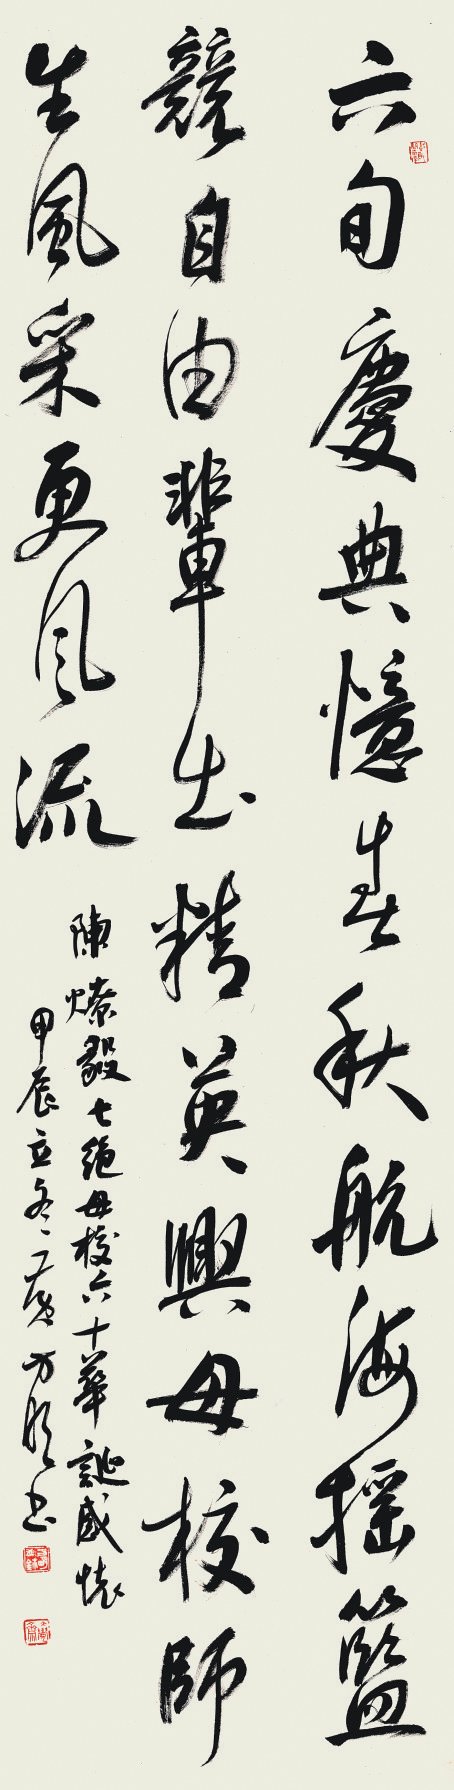 六旬慶典憶春秋航海搖籃
競自由輩出精英興母校師
生風采更風流
陳燎毅七絕母校六十華誕感懷
甲辰立冬黃方悅書